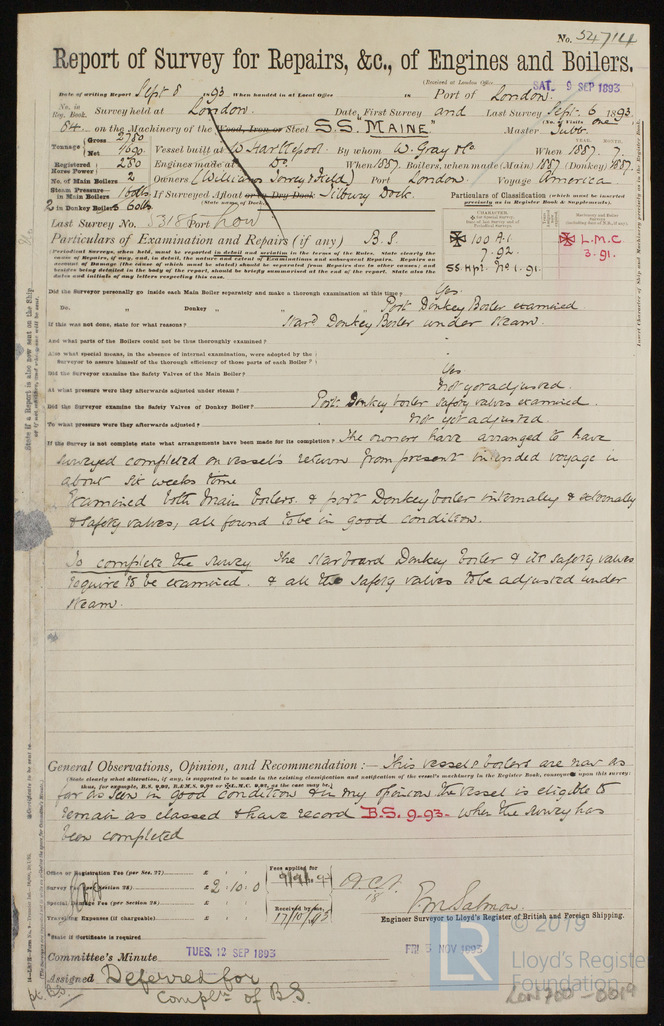 No. 54714
Report of Survey for Repairs, &c., of Engines and Boilers.
(Received at London Office SAT. 9 SEP 1893
Date of writing Report Sept 8 1893 When handed in at Local Office Port of London.
No. in Reg. Book. Survey held at London. Date, First Survey and Last Survey Sept. 6 1893
(No. of Visits one)
84 on the Machinery of the Wood, Iron or Steel S.S. MAINE Master Tubb.
Tonnage Gross 2780 Net Vessel built at W Hartlepool. By whom W. Gray & Co When 1887. 7
Registered Horse Power 280 Engines made at Do. When 1887. Boilers, when made (Main) 1887 (Donkey) 1887.
No. of Main Boilers 2 Owners (Williams Torrey & Feild) Port London. Voyage America
Steam Pressure in Main Boilers If Surveyed Afloat or in Dry Dock Tilbury Dock.
(State name of Dock.)
2 in Donkey Boilers 60lbs
Particulars of Classification (which must be inserted precisely as in Register Book & Supplements).
Last Survey No. 5318 Port Lon
Particulars of Examination and Repairs (if any) B.S
100 A.1.
7.92
SS. Hpl. No 1. 91.
L.M.C
3.91.
Did the Surveyor personally go inside each Main Boiler separately and make a thorough examination at this time? Yes.
Do. " Donkey " " " Port Donkey Boiler examined
If this was not done, state for what reasons? Starbd Donkey Boiler under steam.
And what parts of the Boilers could not be thus thoroughly examined?
Also what special means, in the absence of internal examination, were adopted by the Surveyor to assure himself of the thorough efficiency of those parts of each Boiler?
Did the Surveyor examine the Safety Valves of the Main Boiler? Yes
At what pressure were they afterwards adjusted under steam? Not yet adjusted.
Did the Surveyor examine the Safety Valves of Donkey Boiler? Port Donkey boiler safety valves examined.
To what pressure were they afterwards adjusted? Not yet adjusted.
If the Survey is not complete state what arrangements have been made for its completion? The owners have arranged to have
survey completed on vessel's return from present intended voyage in
about six weeks time
Examined both Main boilers & port Donkey boiler internally & externally
& safety valves, all found to be in good condition.
To complete the survey The starboard Donkey boiler & its safety valves
require to be examined. & all the safety valves to be adjusted under
steam.
General Observations, Opinion, and Recommendation:— This vessel's boilers are now as
(State clearly what alteration, if any, is suggested to be made in the existing classification and notification of the vessel's machinery in the Register Book, consequent upon this survey:
far as seen in good condition & in my opinion the vessel is eligible to
remain as classed & have record B.S. 9-93- when the survey has
been completed
Office or Registration Fee (per Sec. 27) £
Survey Fee (per Section 28) £ 2 . 10 . 0
Special Damage Fee (per Section 28) £
Travelling Expenses (if chargeable) £
Fees applied for
Received by me,
17/10/93
Engineer Surveyor to Lloyd's Register of British and Foreign Shipping.
*State if Certificate is required
Committee's Minute TUES. 12 SEP 1893 FRI 3 NOV 1893
Assigned Deferred for
Compln of B.S.
© 2019
Lloyd's Register
Foundation
LON 700 - 0019